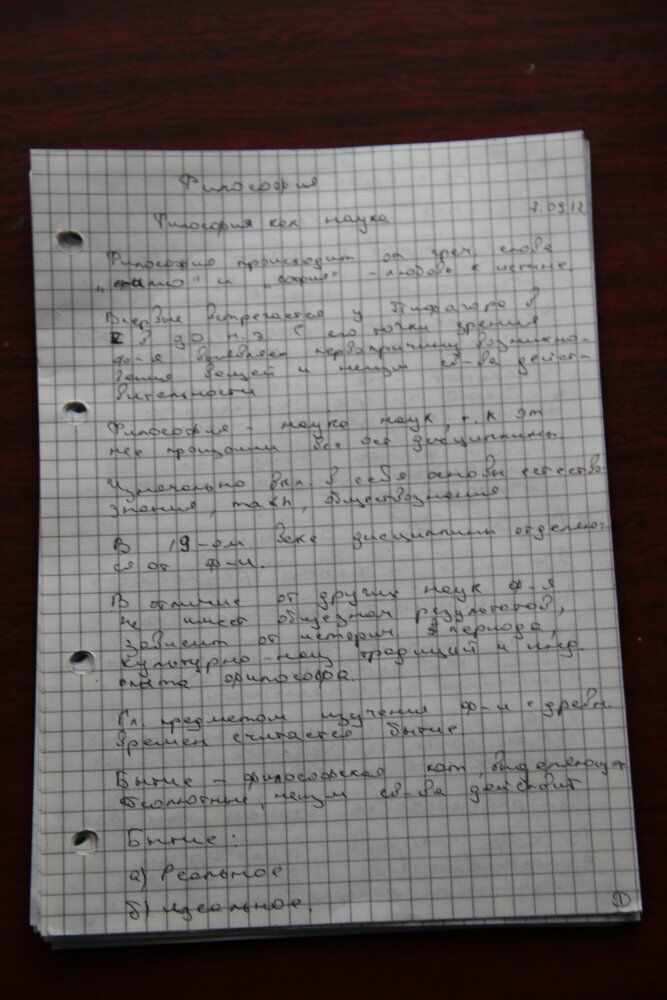 Философия
Философия как наука
7.09.12
Философия происходит от греч слова
„филио" и „софия" - любовь к истине.
Впервые встречается у Пифагора в
V в до н.э С его точки зрения
ф-я выявляет первопричину возникно-
вения вещей и неизм св-ва дейст-
вительности
Философия - наука наук, т.к от
нее произошли все др дисциплины.
Изначально вкл. в себя основы естество-
знания, , обществознания.
В 19-ом веке дисциплины отделяют-
ся от ф-и.
В отличие от других наук ф-я
не имеет общезнач результатов,
зависит от историч периода,
культурно-нац традиций и инд.
опыта философа.
Гл. предметом изучения ф-и с древн.
времен считается бытие
Бытие - философская кат, выделяющая
абсолютные, неизм св-ва действит
Бытие:
а) Реальное
б) идеальное.